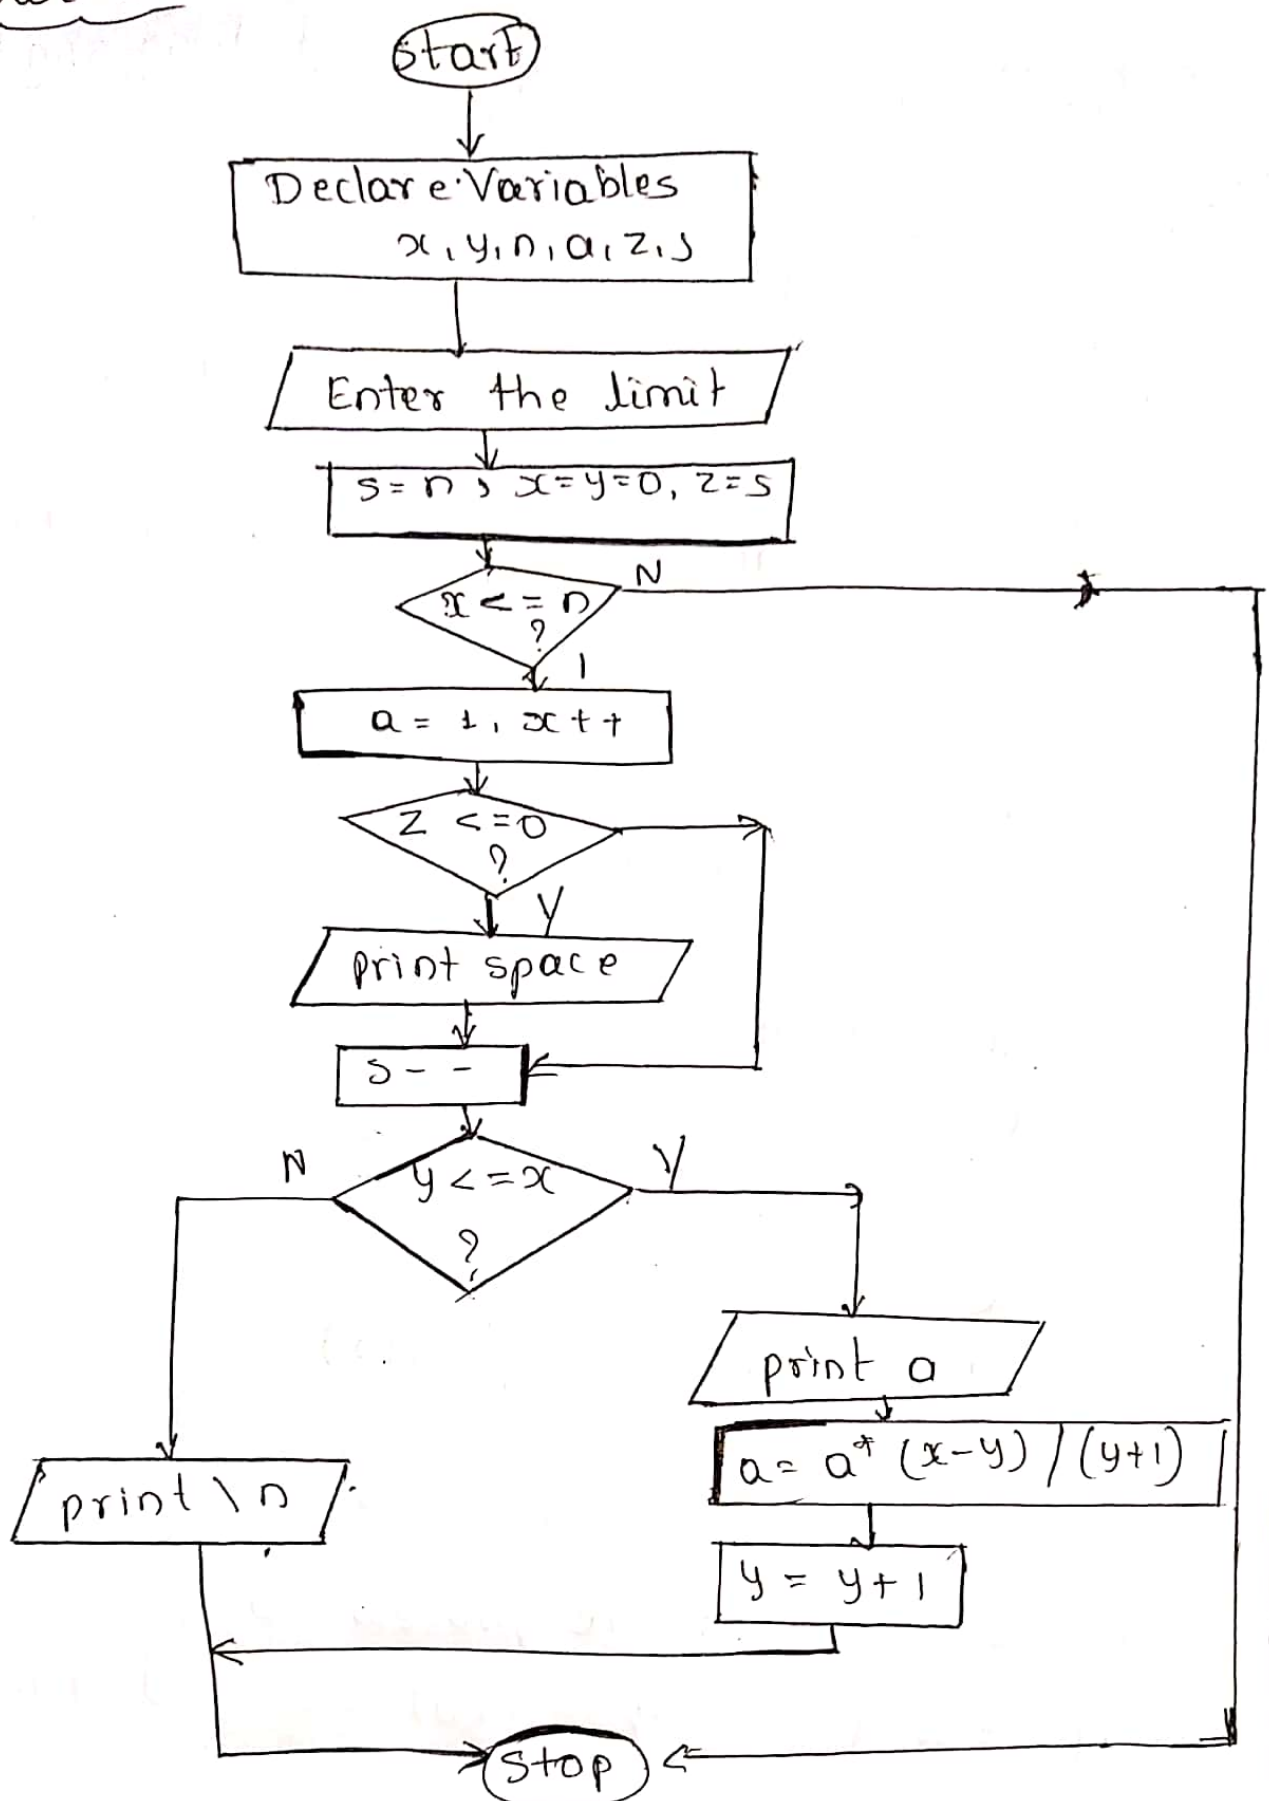 Start
Declare Variables
x, y, n, a, z, s
Enter the limit
s = n, x = y = 0, z = s
x <= n
?
N
1
a = 1, x++
z <= 0
?
Y
print space
s--
y <= x
?
N
Y
print a
a = a* (x-y) / (y+1)
y = y+1
print \n
stop